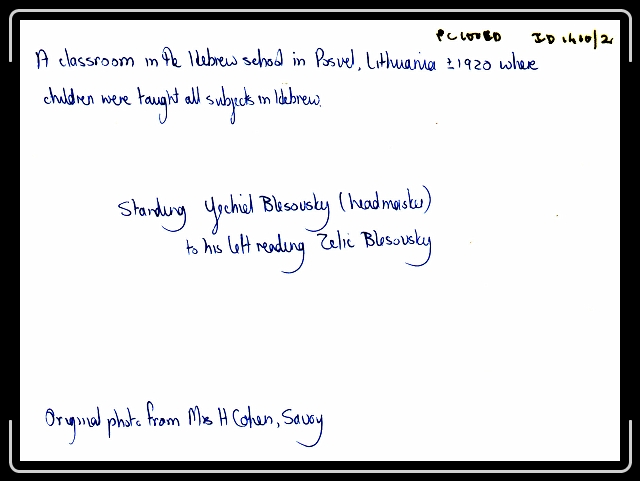 ID
A classroom in the Hebrew school in Posvel, Lithuania ±1920 where
children were taught all subjects in Hebrew.
Standing Yechiel Blesovsky (headmaster)
to his left reading Zelic Blesovsky
Original photo from Mrs H Cohen, Savoy